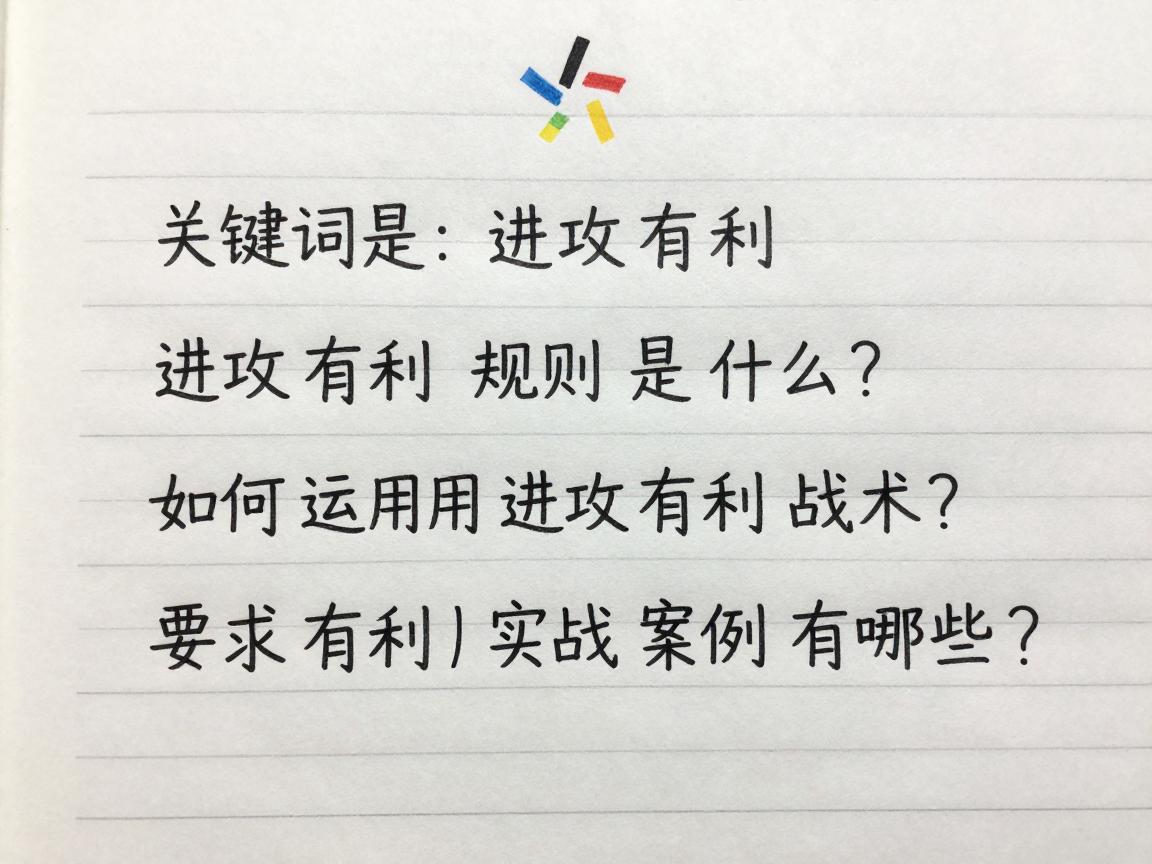 关键词是：进攻有利
进攻有利 规则是什么？
如何运用用进攻有利战术？
要求有利/实战案例有哪些？